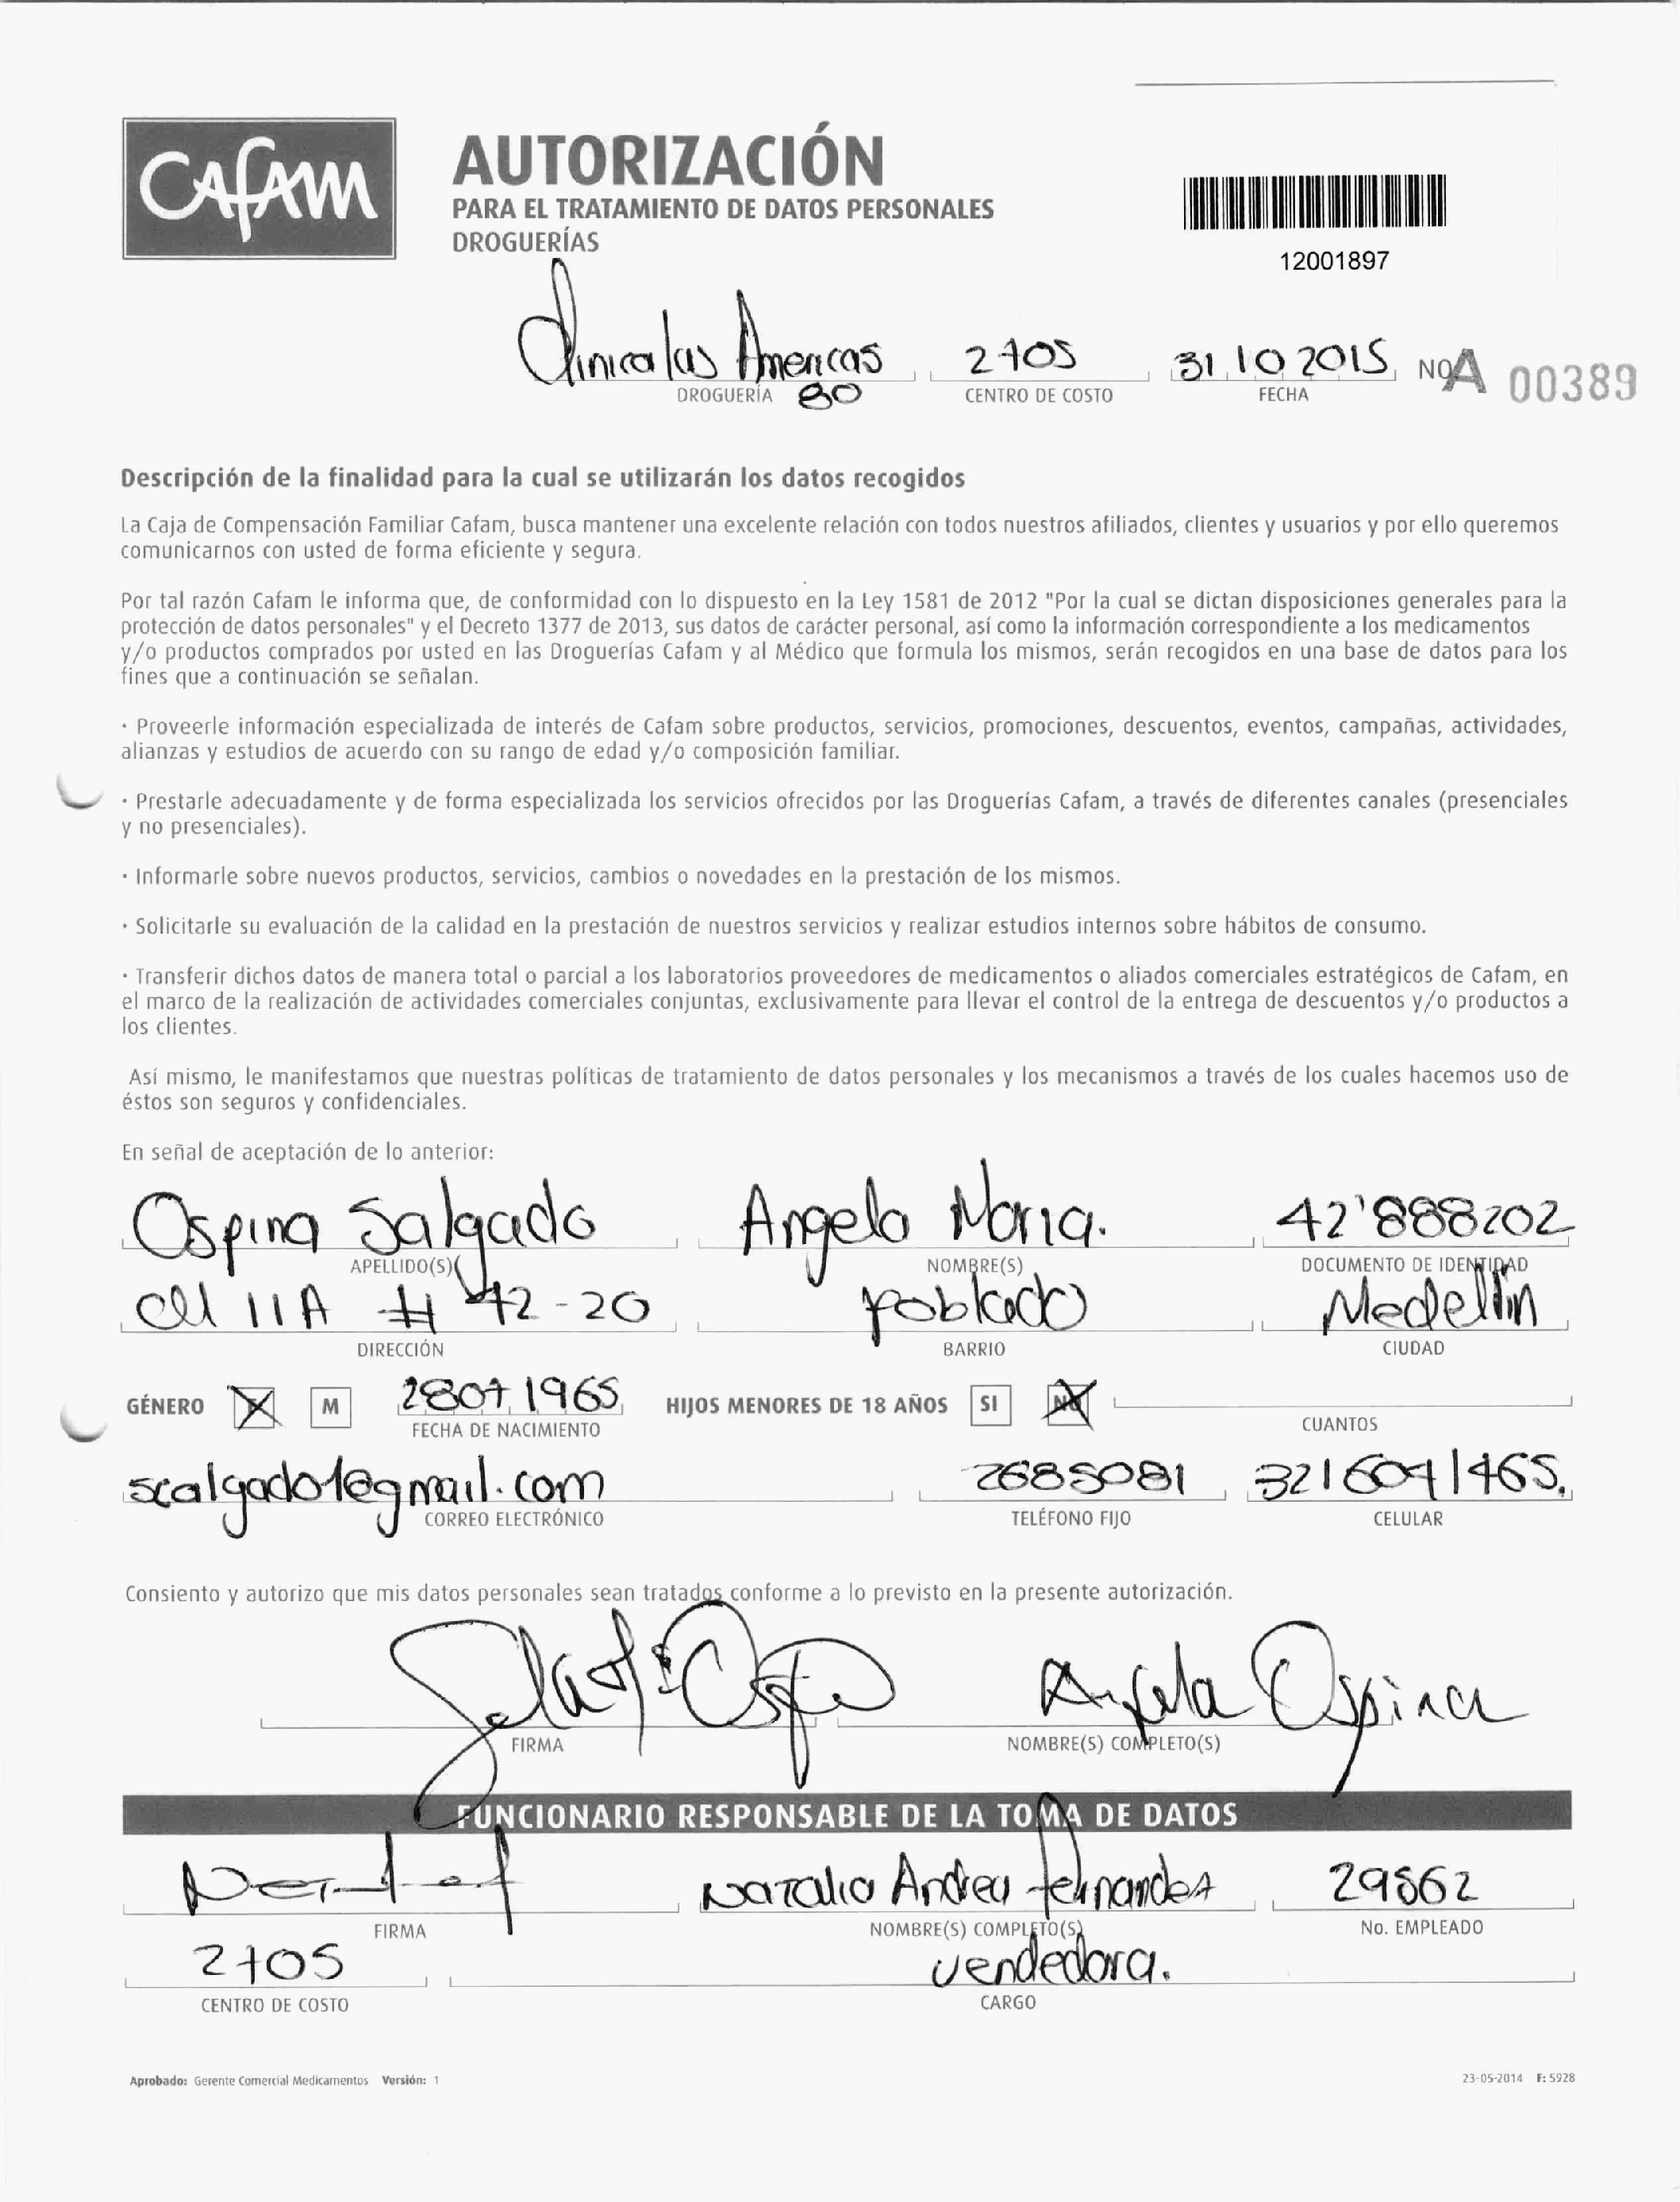 CAFAM
AUTORIZACIÓN
PARA EL TRATAMIENTO DE DATOS PERSONALES
DROGUERÍAS
12001897
Clinica las Americas 2705 31 10 2015 NO A 00389
DROGUERÍA 80 CENTRO DE COSTO FECHA
Descripción de la finalidad para la cual se utilizarán los datos recogidos
La Caja de Compensación Familiar Cafam, busca mantener una excelente relación con todos nuestros afiliados, clientes y usuarios y por ello queremos
comunicarnos con usted de forma eficiente y segura.
Por tal razón Cafam le informa que, de conformidad con lo dispuesto en la Ley 1581 de 2012 "Por la cual se dictan disposiciones generales para la
protección de datos personales" y el Decreto 1377 de 2013, sus datos de carácter personal, así como la información correspondiente a los medicamentos
y/o productos comprados por usted en las Droguerías Cafam y al Médico que formula los mismos, serán recogidos en una base de datos para los
fines que a continuación se señalan.
· Proveerle información especializada de interés de Cafam sobre productos, servicios, promociones, descuentos, eventos, campañas, actividades,
alianzas y estudios de acuerdo con su rango de edad y/o composición familiar.
· Prestarle adecuadamente y de forma especializada los servicios ofrecidos por las Droguerías Cafam, a través de diferentes canales (presenciales
y no presenciales).
· Informarle sobre nuevos productos, servicios, cambios o novedades en la prestación de los mismos.
· Solicitarle su evaluación de la calidad en la prestación de nuestros servicios y realizar estudios internos sobre hábitos de consumo.
· Transferir dichos datos de manera total o parcial a los laboratorios proveedores de medicamentos o aliados comerciales estratégicos de Cafam, en
el marco de la realización de actividades comerciales conjuntas, exclusivamente para llevar el control de la entrega de descuentos y/o productos a
los clientes.
Así mismo, le manifestamos que nuestras políticas de tratamiento de datos personales y los mecanismos a través de los cuales hacemos uso de
éstos son seguros y confidenciales.
En señal de aceptación de lo anterior:
Ospina Salgado Angela Maria. 42'888202
APELLIDO(S) NOMBRE(S) DOCUMENTO DE IDENTIDAD
Cll 11A # 42-20 poblado Medellin
DIRECCIÓN BARRIO CIUDAD
GÉNERO M 2807 1965 HIJOS MENORES DE 18 AÑOS SI NO
FECHA DE NACIMIENTO CUANTOS
scalgado1@gmail.com 2685081 3216091465.
CORREO ELECTRÓNICO TELÉFONO FIJO CELULAR
Consiento y autorizo que mis datos personales sean tratados conforme a lo previsto en la presente autorización.
Angela Ospina
FIRMA NOMBRE(S) COMPLETO(S)
FUNCIONARIO RESPONSABLE DE LA TOMA DE DATOS
Natalia Andrea fernandez 29862
FIRMA NOMBRE(S) COMPLETO(S) No. EMPLEADO
2705 vendedora.
CENTRO DE COSTO CARGO
Aprobado: Gerente Comercial Medicamentos Versión: 1 23-05-2014 F: 5928